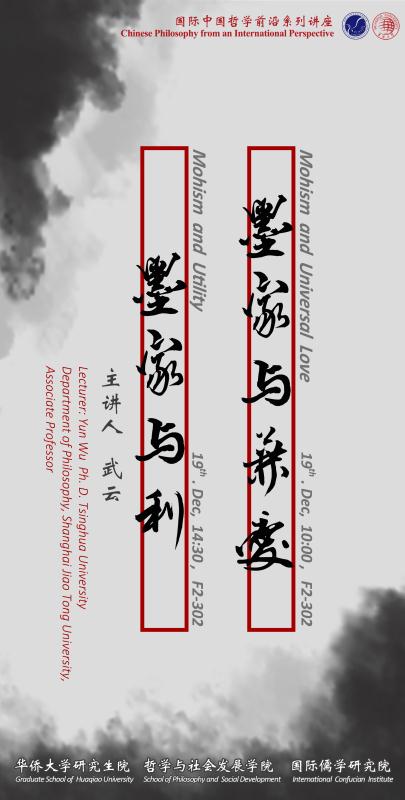 国际中国哲学前沿系列讲座
Chinese Philosophy from an International Perspective
Mohism and Universal Love
19th. Dec, 10:00, F2-302
墨家与兼爱
Mohism and Utility
19th. Dec, 14:30, F2-302
墨家与利
主讲人 武云
Lecturer: Yun Wu Ph. D. Tsinghua University
Department of Philosophy, Shanghai Jiao Tong University,
Associate Professor
华侨大学研究生院 哲学与社会发展学院 国际儒学研究院
Graduate School of Huaqiao University School of Philosophy and Social Development International Confucian Institute